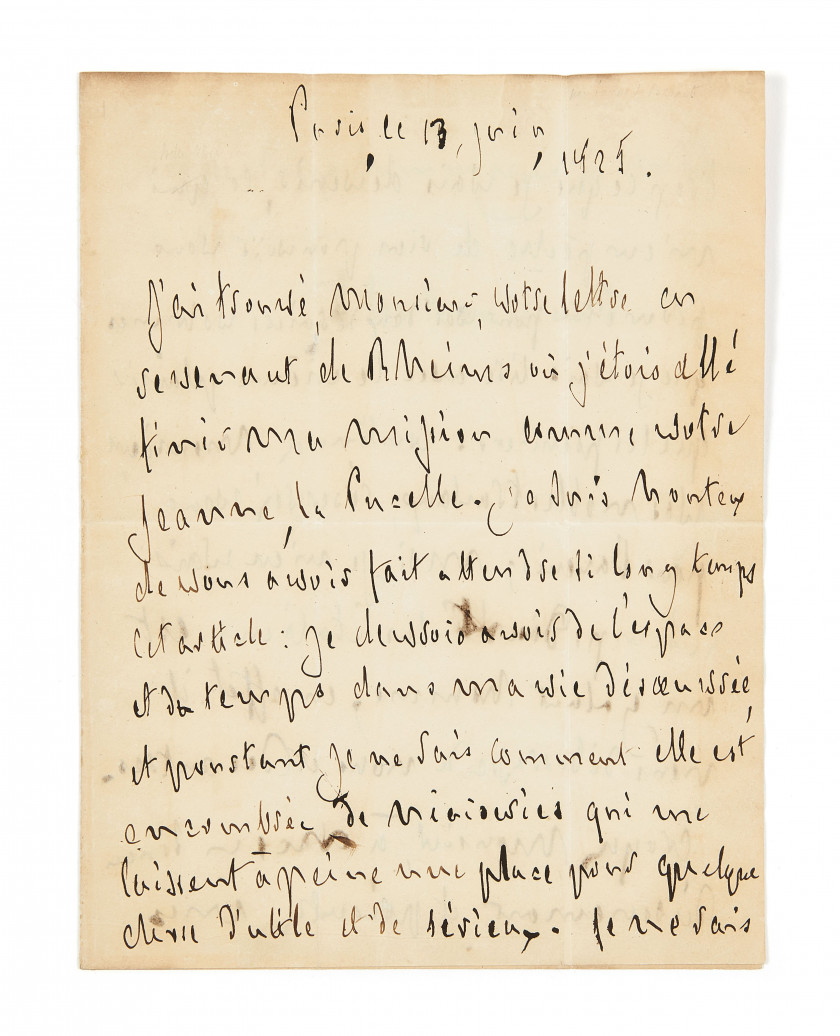 Paris, le 13, juin,
1825.
j'ai trouvé, Monsieur, votre lettre en
revenant de Rheims où j'étois allé
finir ma mission comme votre
jeanne, la Pucelle. je suis honteux
de vous avoir fait attendre si long temps
cet article : je devrois avoir de l'espace
et du temps dans ma vie désœuvrée,
et pourtant je ne sais comment elle est
encombrée de niaiseries qui me
laissent à peine une place pour quelque
chose d'utile et de sérieux. je ne sais